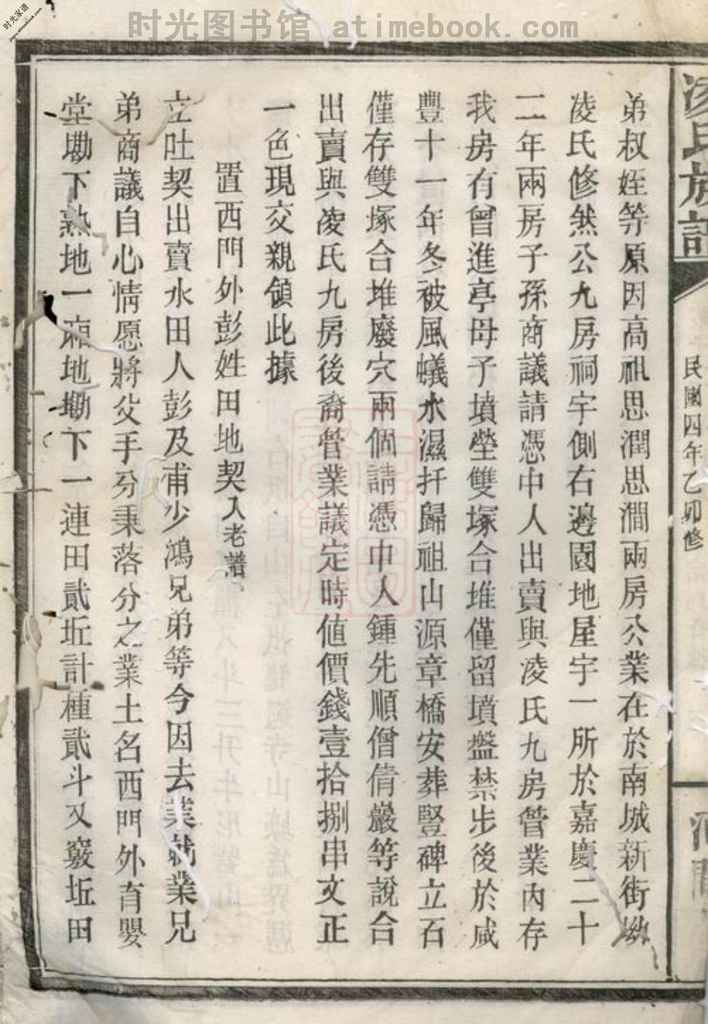 时光图书馆 atimebook.com
时光家谱
凌氏族譜
民國四年乙卯修
河間
弟叔姪等原因高祖思潤思澗兩房公業在於南城新街坳
凌氏修然公九房祠宇側右邊園地屋宇一所於嘉慶二十
二年兩房子孫商議請憑中人出賣與凌氏九房管業內存
我房有曾進亭母子墳塋雙塚合堆僅留墳盤禁步後於咸
豐十一年冬被風蟻水濕扦歸祖山源章橋安葬豎碑立石
僅存雙塚合堆廢穴兩個請憑中人鍾先順僧倩巖等說合
出賣與凌氏九房後裔管業議定時値價錢壹拾捌串文正
一色現交親領此據
置西門外彭姓田地契入老譜
立吐契出賣水田人彭及甫少鴻兄弟等今因去業就業兄
弟商議自心情愿將父手分秉落分之業土名西門外育嬰
堂墈下熟地一廂地墈下一連田貳坵計種貳斗又竅坵田